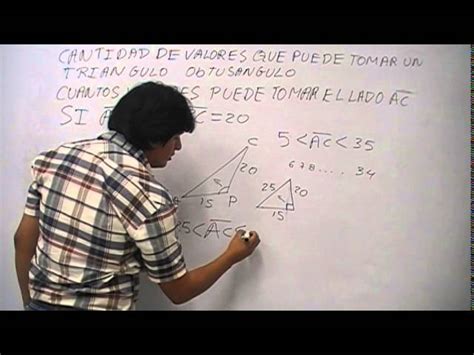 CANTIDAD DE VALORES QUE PUEDE TOMAR UN
TRIANGULO ObTUSANGULO
CUANTOS PUEDE TOMAR EL LADO A̅C̅
SI =20
5<A̅C̅<35
6 7 8 .... 34
C
20
15
P
25
20
15
5<A̅C̅